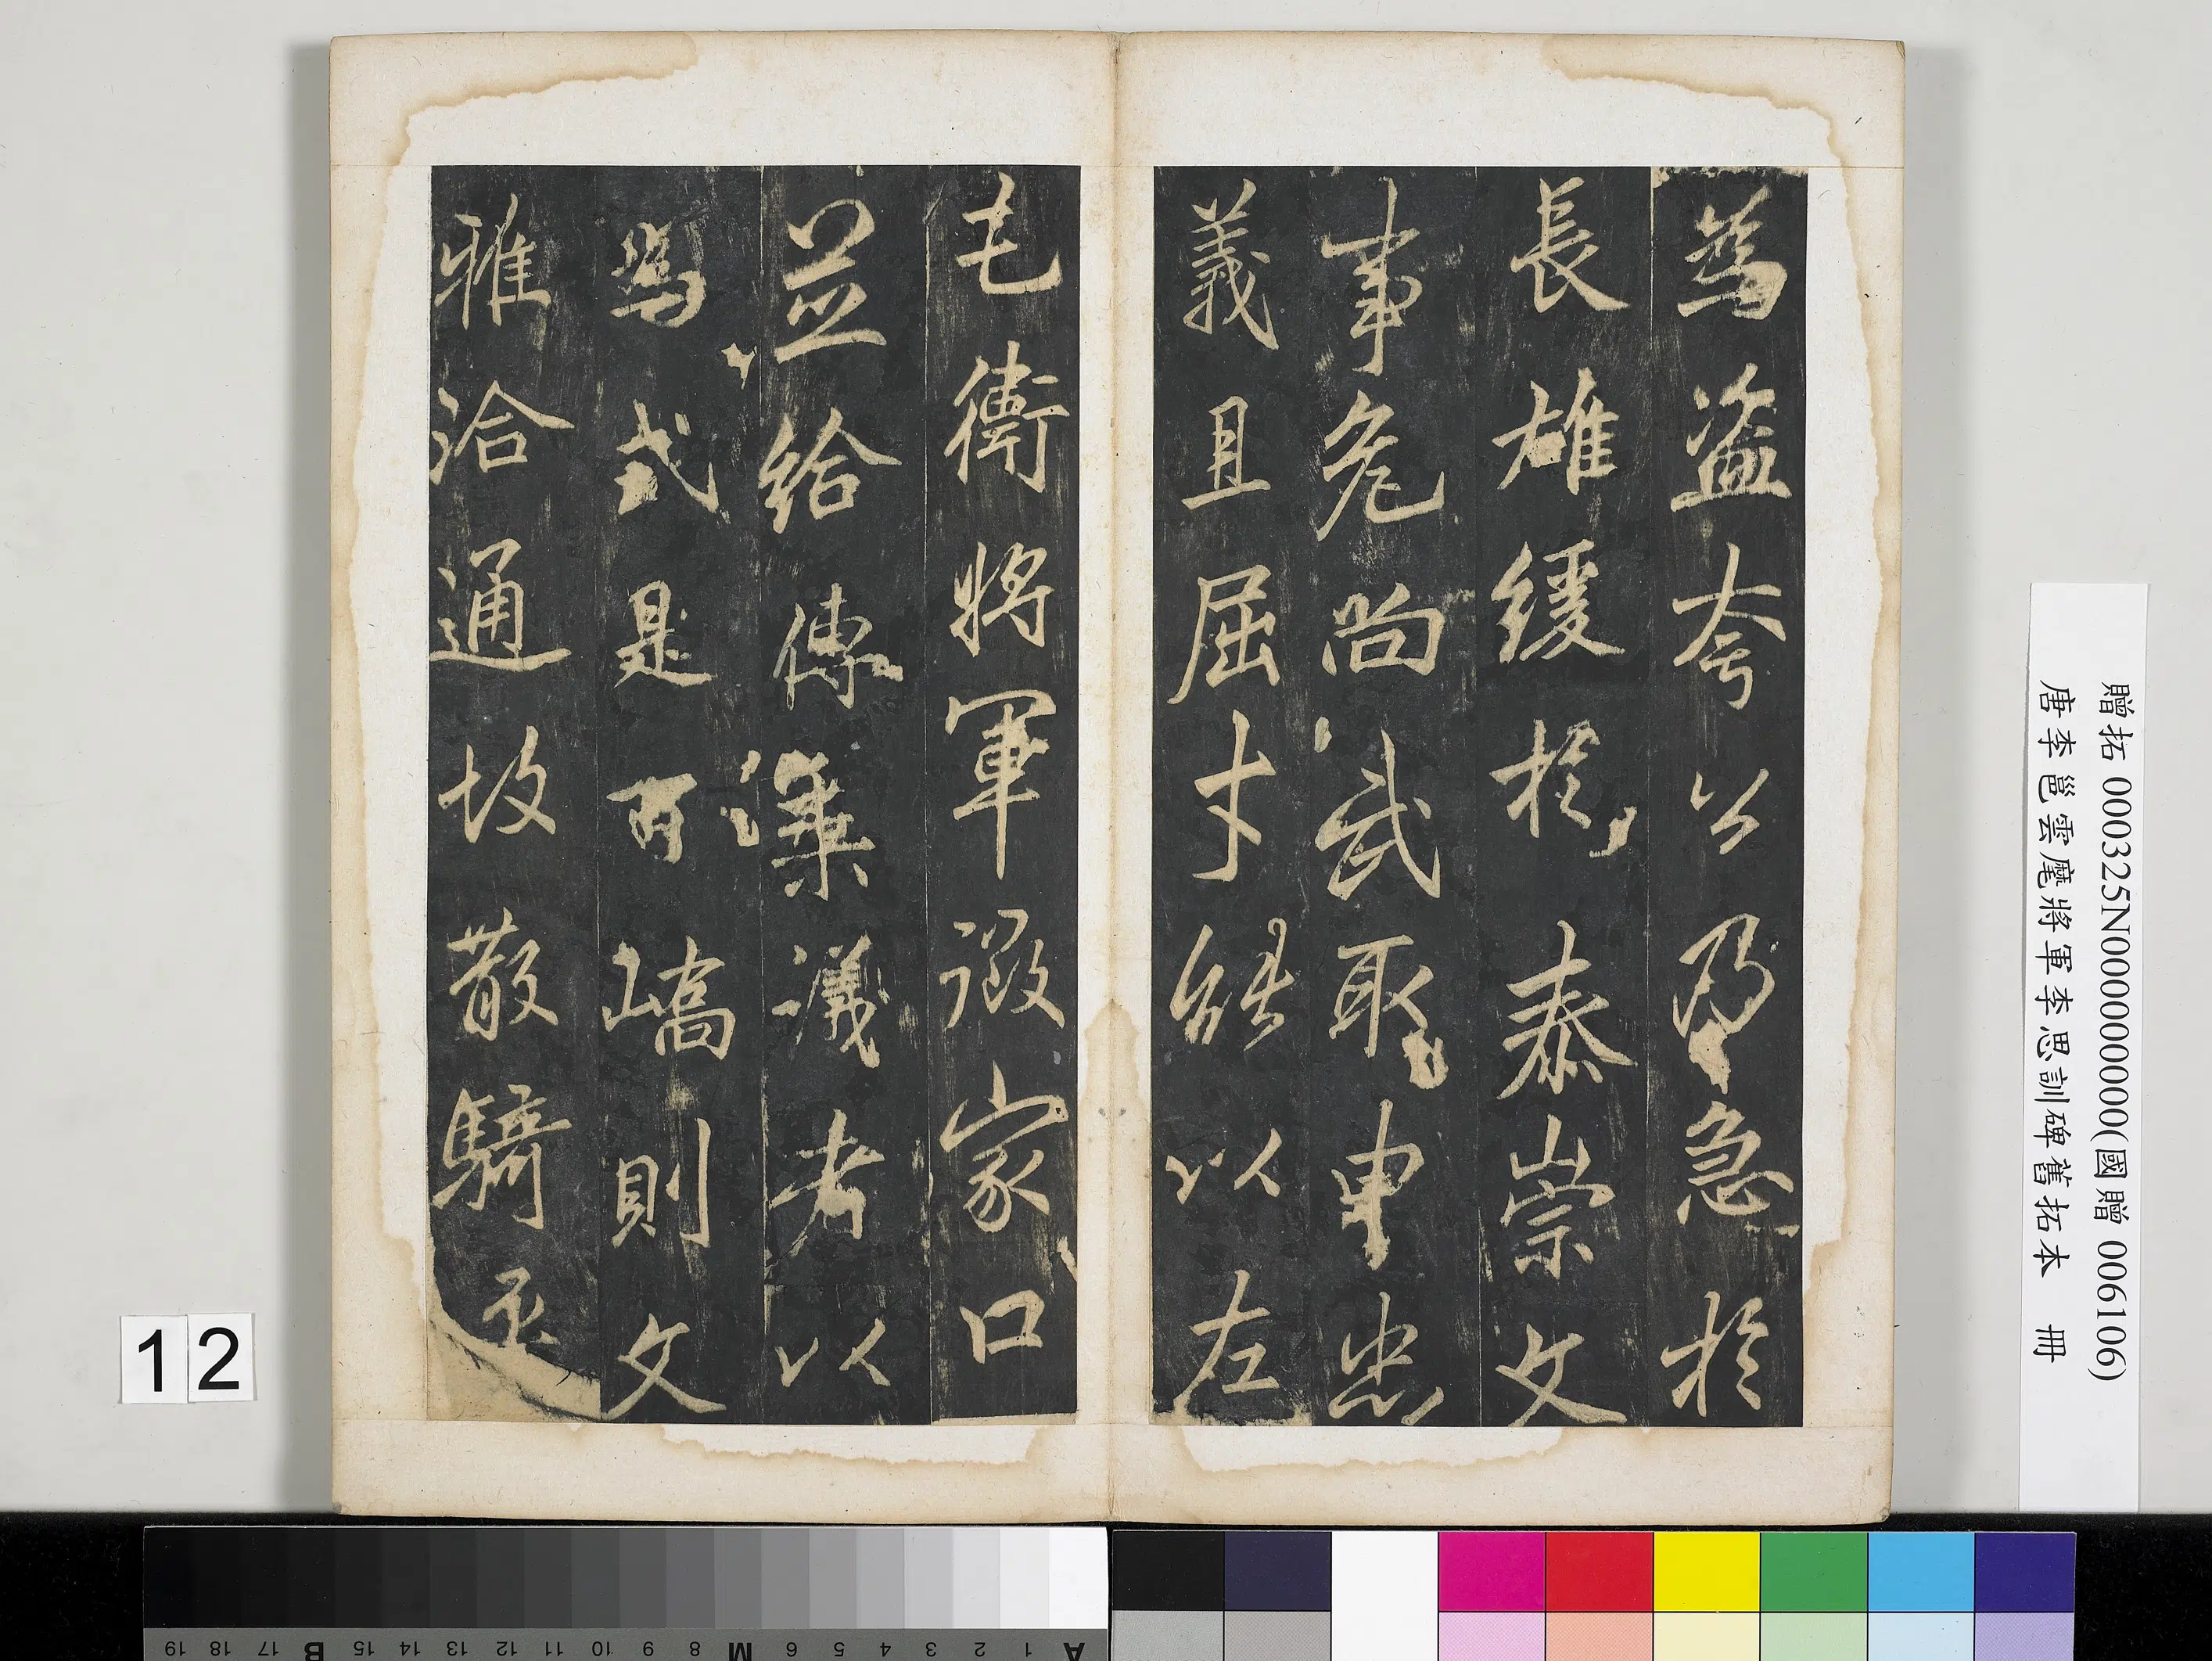 贈拓 000325N000000000(國贈 006106)
唐李邕雲麾將軍李思訓碑舊拓本 冊
為盗夸公乃急於
長雄緩於泰崇文
事危尚武聊申忠
義且屈才能以左
屯衛將軍徵家口
並給傳乘議者以
為式是百嶠則文
雅洽通故散騎丞
12
A 1 2 3 4 5 6 M 8 9 10 11 12 13 14 15 B 17 18 19